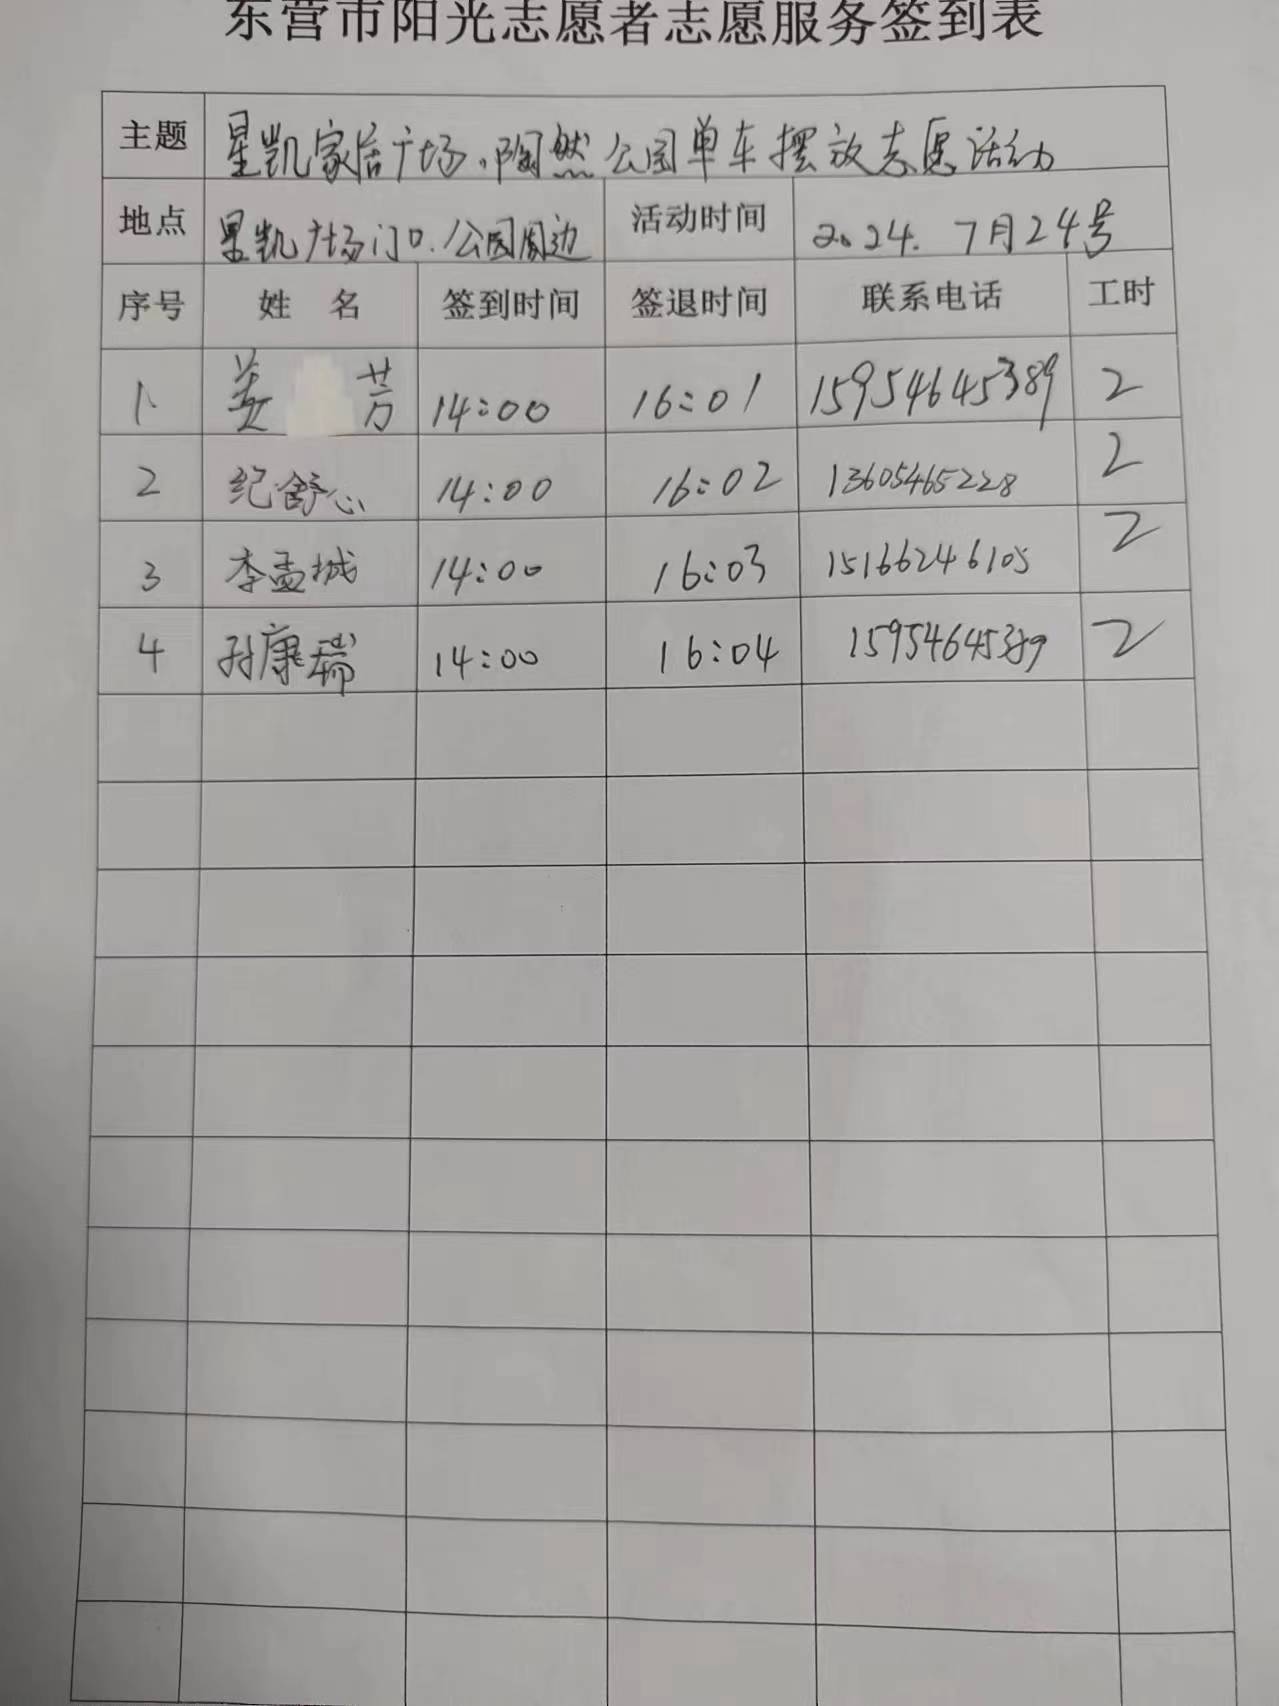 东营市阳光志愿者志愿服务签到表
主题 星凯家居广场、陶然公园单车摆放志愿活动
地点 星凯广场门口、公园周边 活动时间 2024. 7月24号
序号 姓 名 签到时间 签退时间 联系电话 工时
1. 姜 芳 14:00 16:01 15954645389 2
2 纪舒心 14:00 16:02 13605465228 2
3 李孟城 14:00 16:03 15166246105 2
4 孙康瑞 14:00 16:04 15954645389 2